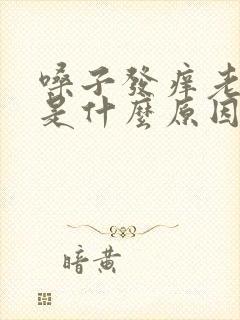 嗓子發癢老
是什麼原因
暗黄